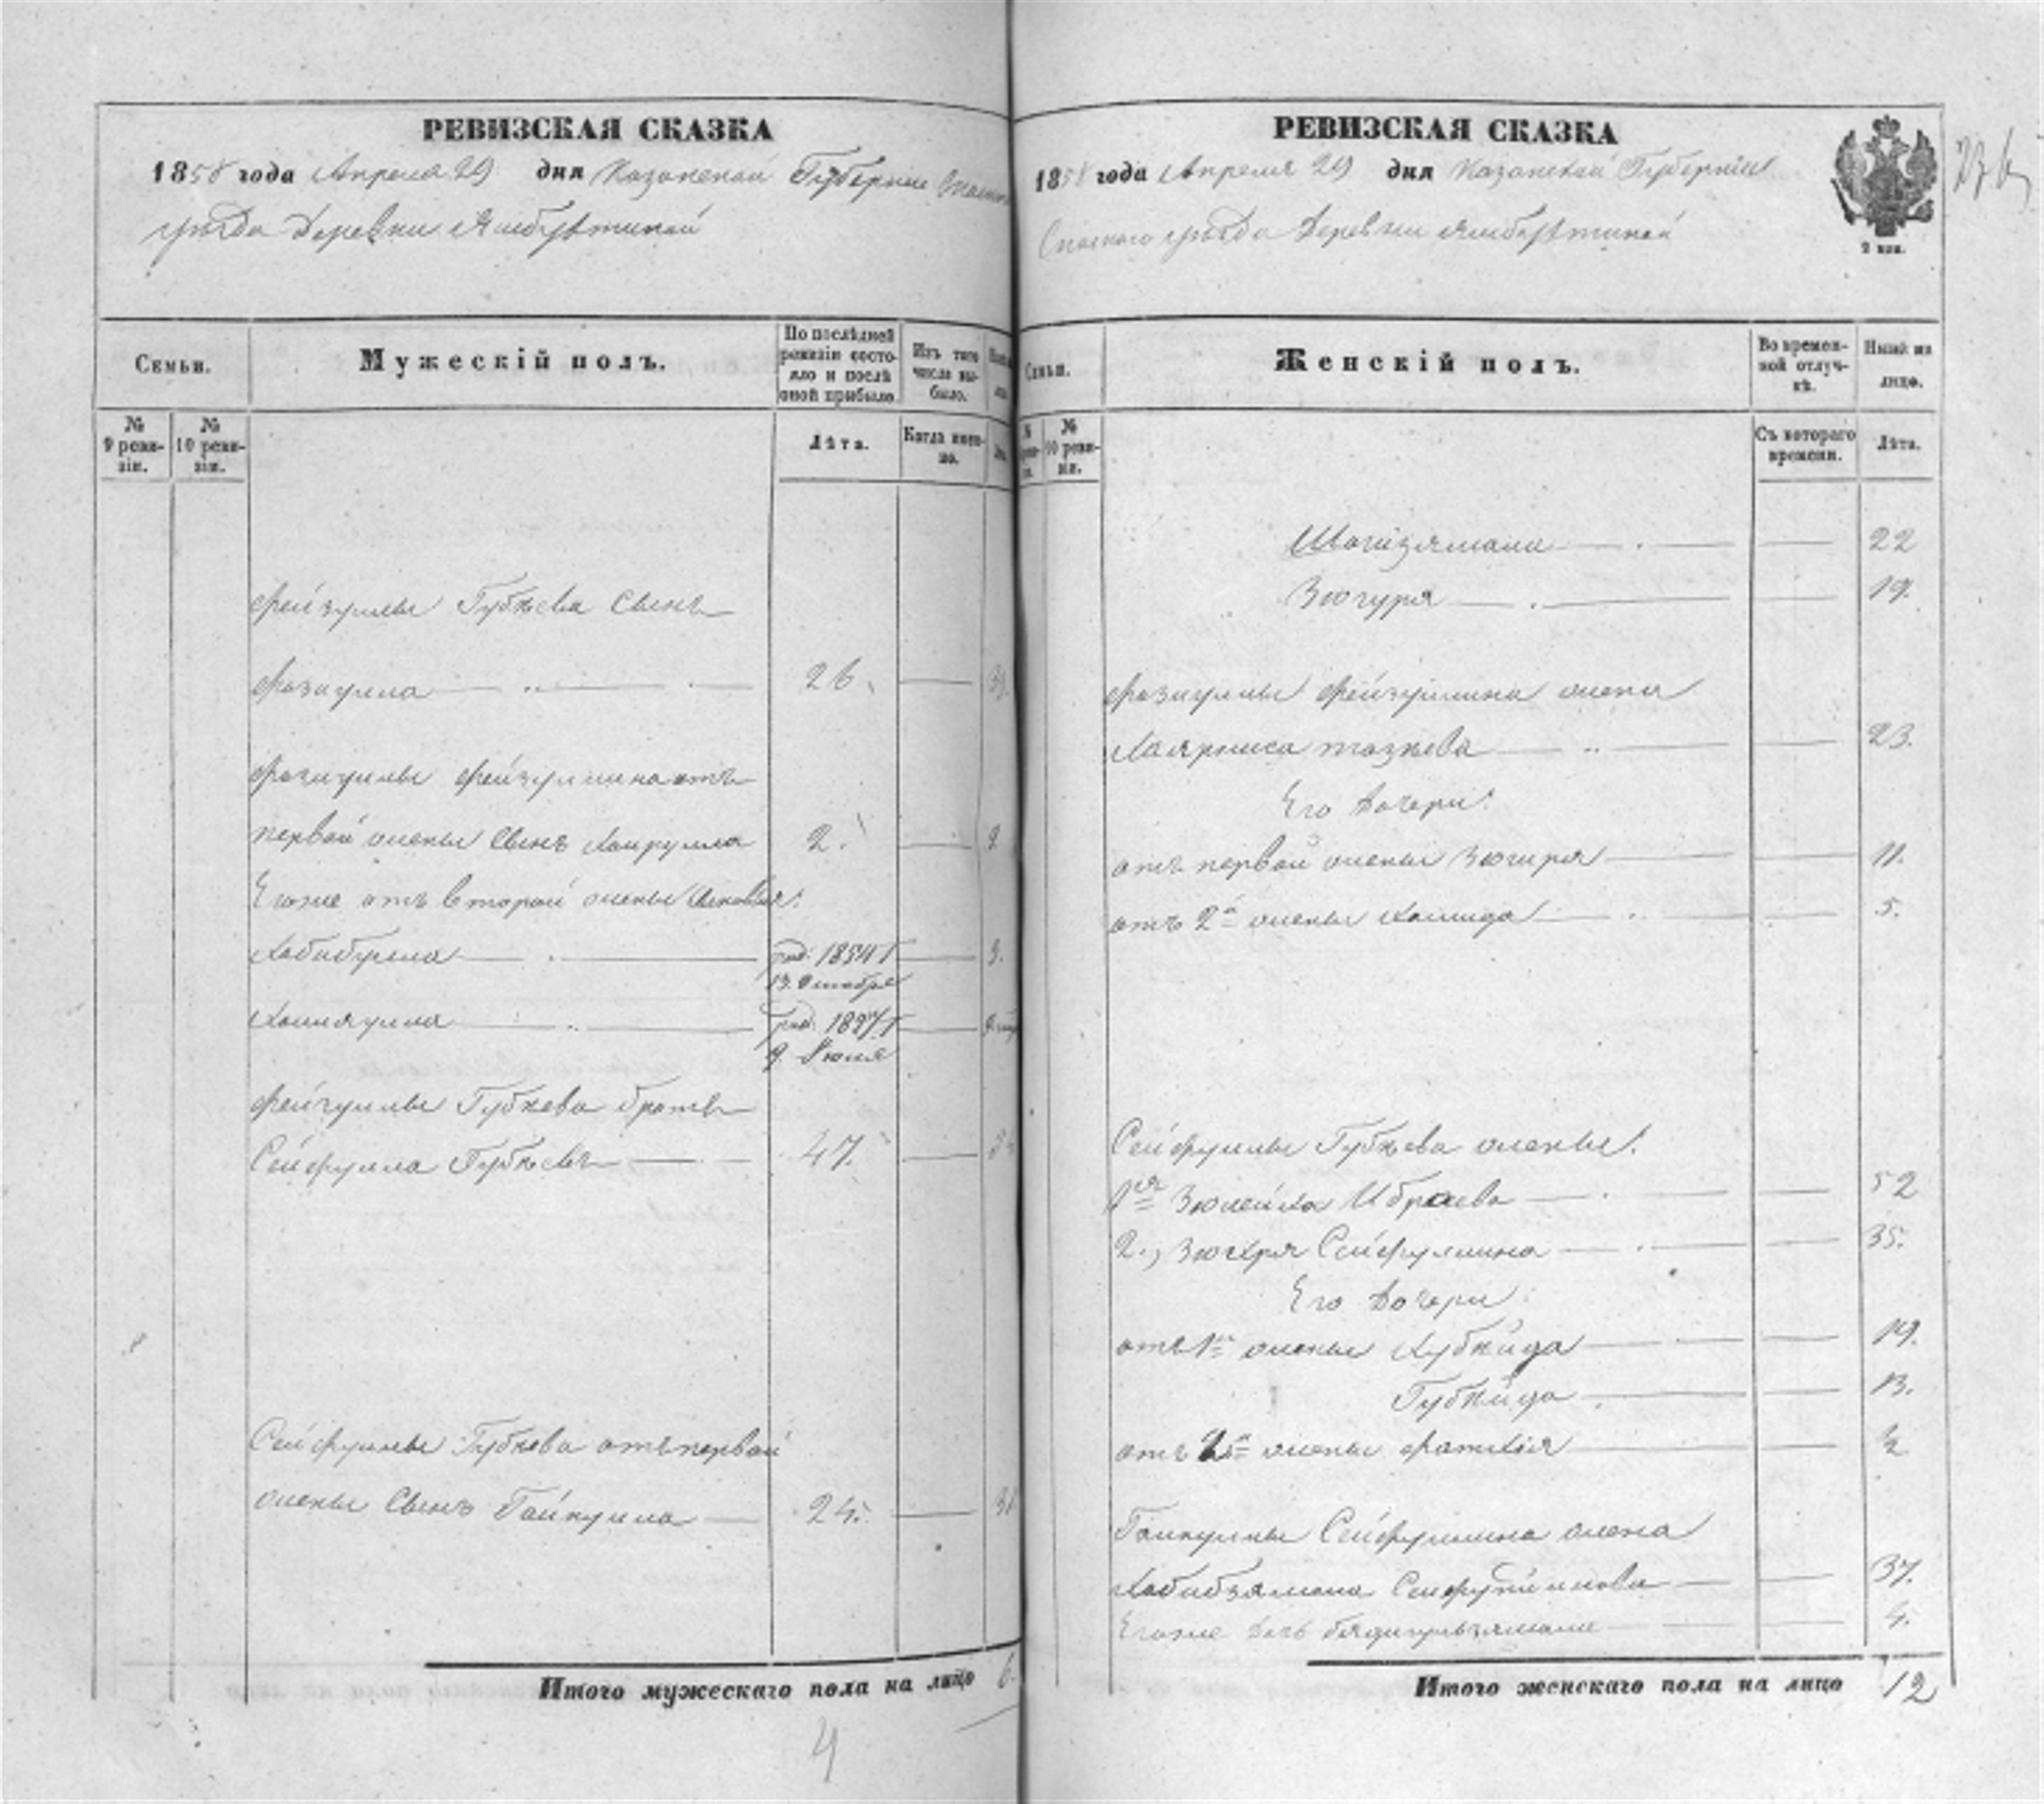 РЕВИЗСКАЯ СКАЗКА
1858 года Апреля 29 дня Казанской Губернии
уѣзда Деревни Ямбухтиной
Семьи.
Мужескій полъ.
По послѣдней ревизіи состояло и послѣ оной прибыло
Изъ того числа выбыло.
№ 9 ревизіи.
№ 10 ревизіи.
Лѣта.
Когда именно.
Фейзуллы Губѣева сынъ
Фазлулла 26.
Фазлуллы Фейзуллина отъ
первой жены сынъ Хайрулла 2. 9
Его же отъ второй жены сыновья:
Хабибулла род. 1854 г 3.
13. Октября
род. 1857 г
9. Июля
Фейзуллы Губѣева братъ
Сейфулла Губѣевъ 47.
Сейфуллы Губѣева отъ первой
жены сынъ Гайнулла 24. 31
Итого мужескаго пола на лицо 6.
4
РЕВИЗСКАЯ СКАЗКА
1858 года Апреля 29 дня Казанской Губерніи
Спаского уѣзда Деревни Ямбухтиной
2 коп.
Семьи.
Женскій полъ.
Во временной отлучкѣ.
Нынѣ на лицо.
№ 10 ревизіи.
Съ котораго времени.
Лѣта.
Шагизямали 22
Зюгуря 19.
Фазлуллы Фейзуллина жена
23.
Его дочери:
отъ первой жены Зюгиря 11.
отъ 2й жены Хамида 5.
Сейфуллы Губѣева жены:
1я Зюлейха Ибраева 52
2., Зюгяря Сейфуллина 35.
Его дочери:
отъ 1й жены Хубѣйда 19.
Губѣйда 13.
отъ 2й жены Фатихія ½
Гайнуллы Сейфуллина жена
Хабибзямала Сейфутдинова 37.
Его же дочь 4.
Итого женскаго пола на лицо 12